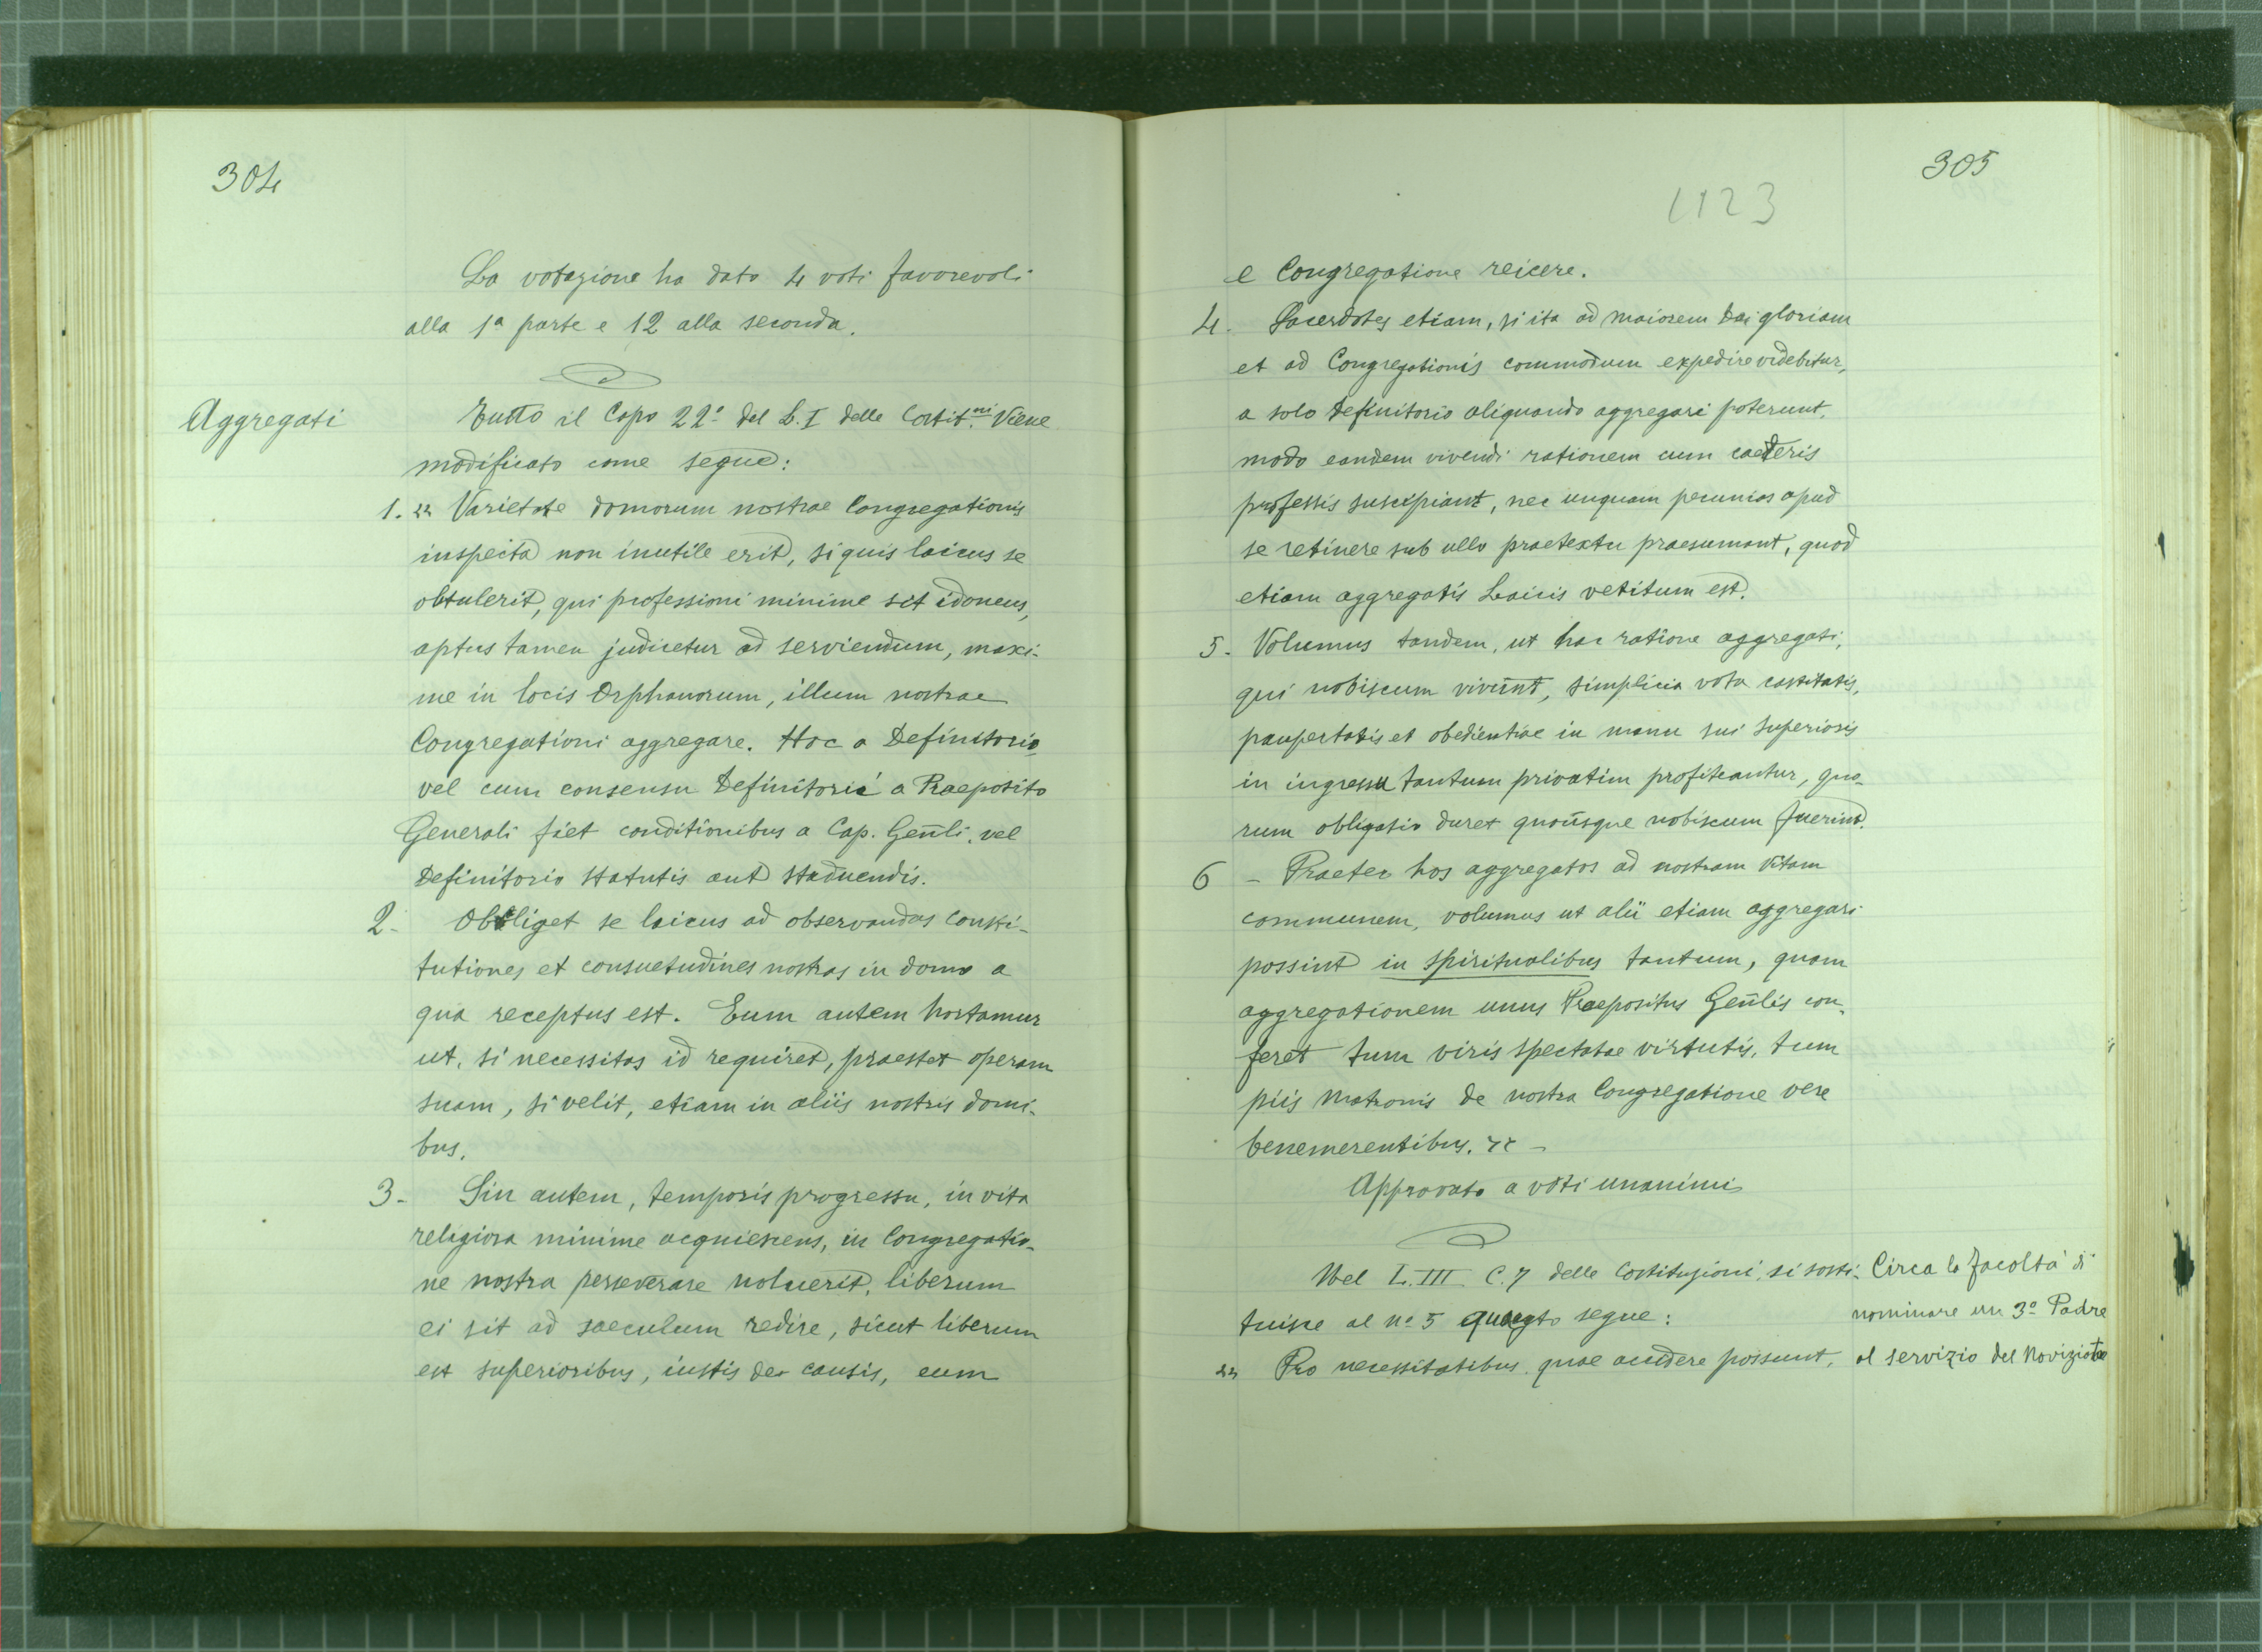 304
La votazione ha dato 4 voti favorevoli
alla 1ª parte e 12 alla seconda.
Aggregati
Tutto il Capo 22º del L. I delle Costit.ni Viene
modificato come segue:
1. „ Varietate domorum nostrae Congregationis
inspecta non inutile erit, si quis laicus se
obtulerit, qui professioni minime sit idoneus,
aptus tamen judicetur ad serviendum, maxi-
me in locis Orphanorum, illum nostrae
Congregationi aggregare. Hoc a Definitorio,
vel cum consensu Definitorii a Praeposito
Generali fiet conditionibus a Cap. Genli. vel
Definitorio statutis aut statuendis.
2- Obliget se laicus ad observandas consti-
tutiones et consuetudines nostras in domo a
qua receptus est. Eum autem hortamur
ut, si necessitas id requiret, praestet operam
suam, si velit, etiam in aliis nostris domi-
bus.
3- Sin autem, temporis progressu, in vita
religiosa minime acquiescens, in Congregatio-
ne nostra perseverare noluerit, liberum
ei sit ad saeculum redire, sicut liberum
est superioribus, iustis de causis, eum
305
1123
e Congregatione reicere.
4. Sacerdotes etiam, si ita ad maiorem Dei gloriam
et ad Congregationis commodum expedire videbitur,
a solo Definitorio aliquando aggregari poterunt,
modo eandem vivendi rationem cum caeteris
professis suscipiant, nec unquam pecunias apud
se retinere sub ullo praetextu praesumant, quod
etiam aggregatis Laicis vetitum est.
5- Volumus tandem, ut hac ratione aggregati,
qui nobiscum vivunt, simplicia vota castitatis,
paupertatis et obedientiae in manu sui Superioris
in ingressu tantum privatim profiteantur, quo-
rum obligatio duret quousque nobiscum fuerint.
6 - Praeter hos aggregatos ad nostram vitam
communem, volumus ut alii etiam aggregari
possint in spiritualibus tantum, quam
aggregationem unus Praepositus Genlis con-
feret tum viris spectatae virtutis, tum
piis matronis de nostra Congregatione vere
benemerentibus. „ -
Approvato a voti unanimi
Nel L. III. C. 7 delle Costituzioni, si sosti-
tuisce al nº 5 quanto segue:
„ Pro necessitatibus quae accidere possunt,
Circa la facoltà di
nominare un 3º Padre
al servizio del Noviziato